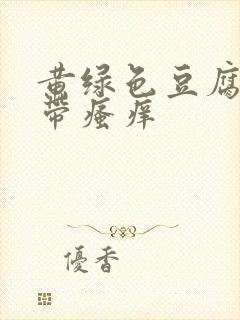 黄绿色豆腐
带瘙痒
優香